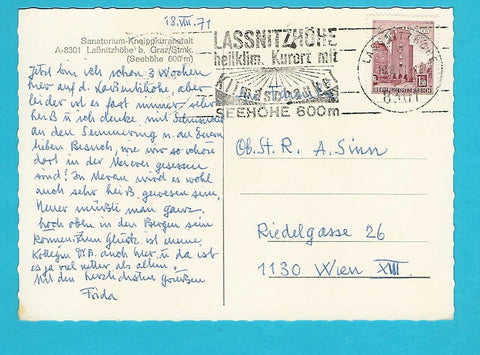 18.VIII.71
Sanatorium-Kneippkuranstalt
A-8301 Laßnitzhöhe b. Graz/Stmk.
(Seehöhe 600 m)
LASSNITZHÖHE
heilklim. Kurort mit
Klimaschaukel
SEEHÖHE 600m
8301
REPUBLIK ÖSTERREICH
Jetzt bin ich schon 3 Wochen
hier auf d. Laßnitzhöhe, aber
leider ist es fast immer sehr
heiß u. ich denke mit Sehnsucht
an den Semmering u. an Euren
lieben Besuch, wie wir so schön
dort in der gesessen
sind! In Meran wird es wohl
auch sehr heiß gewesen sein,
Heuer müßte man ganz
hoch oben in den Bergen sein
Glück ist meine
Kollegin auch hier u. da ist
es ja viel netter als allein.
Mit den herzlichsten Grüßen
Frida
Ob.St.R. A. Sinn
Riedelgasse 26
1130 Wien XIII.